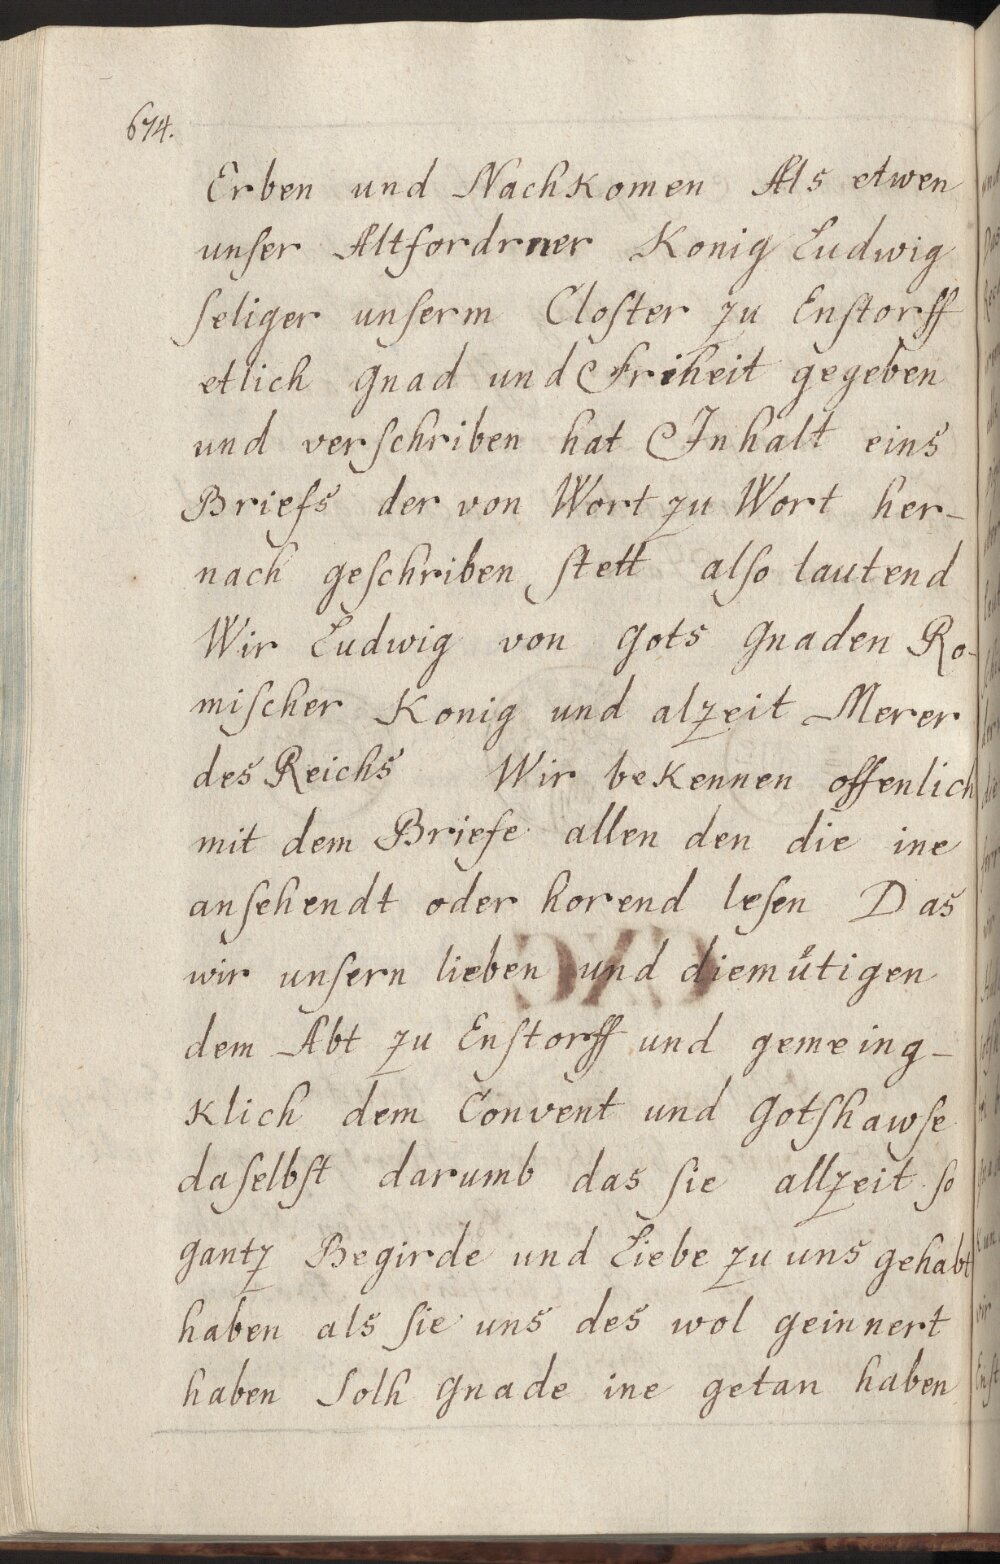 674.
Erben und Nachkomen Als etwen
unſer Altfordrner Konig Ludwig
ſeliger unſerm Cloſter zu Enſtorff
etlich gnad und Friheit gegeben
und verſchriben hat Inhalt eins
Briefs der von Wort zu Wort her-
nach geſchriben ſtett alſo lautend
Wir Ludwig von gots gnaden Ro-
miſcher Konig und alzeit Merer
des Reichs Wir bekennen offenlich
mit dem Briefe allen den die ine
anſehendt oder horend leſen Das
wir unſern lieben und diemůtigen
dem Abt zu Enſtorff und gemeing-
klich dem Convent und gotſhawſe
daſelbſt darumb das ſie allzeit ſo
gantz Begirde und Liebe zu uns gehabt
haben als ſie uns des wol geinnert
haben Solh gnade ine getan haben